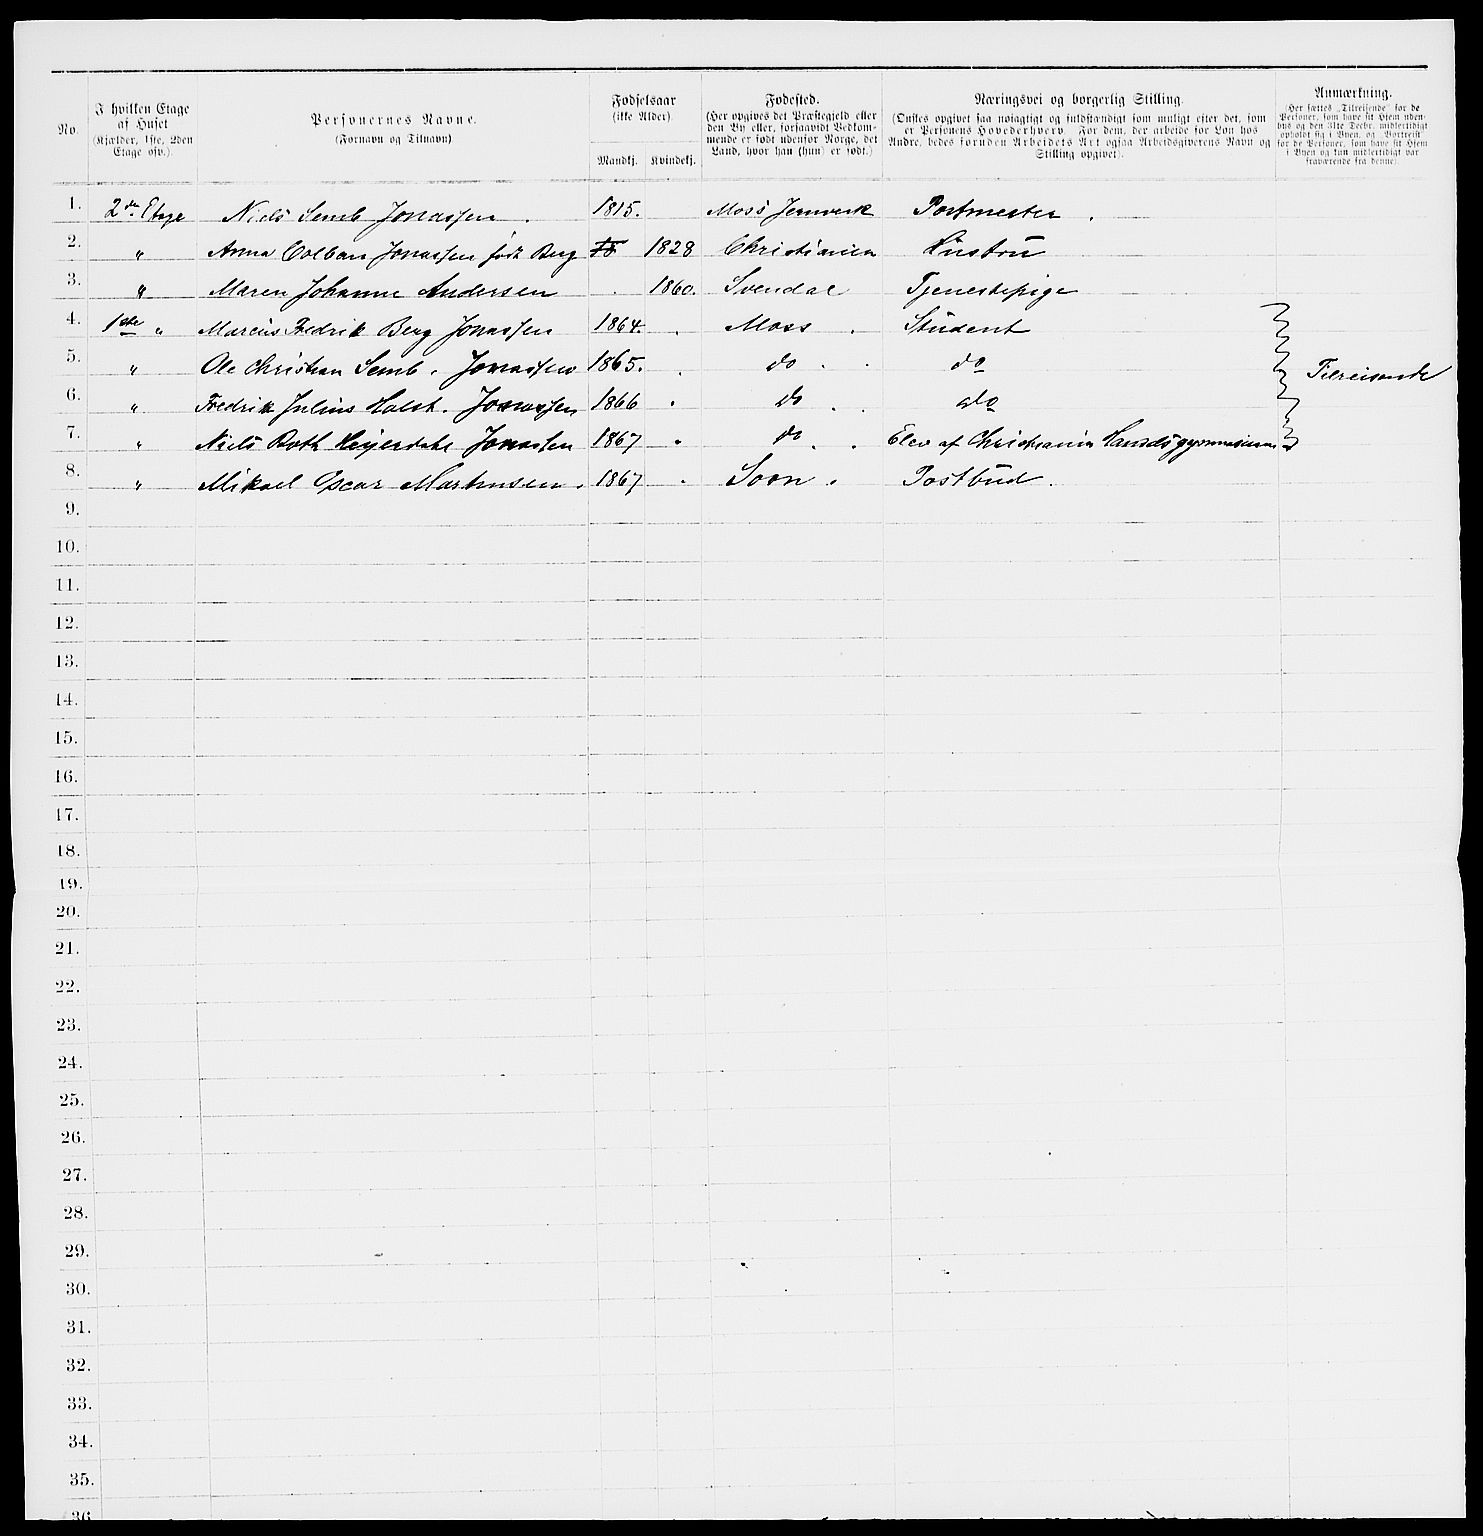 No.
I hvilken Etage
af Huset
(Kjælder, 1ste, 2den
Etage osv.).
Personernes Navne.
(Fornavn og Tilnavn)
Fødselsaar
(ikke Alder).
Mandkj. Kvindekj.
Fødested.
(Her opgives det Præstegjeld eller
den By eller, forsaavidt Vedkom-
mende er født udenfor Norge, det
Land, hvor han (hun) er født.)
Næringsvei og borgerlig Stilling.
(Ønskes opgivet saa nøiagtigt og fuldstændigt som muligt efter det, som
er Personens Hovederhverv. For dem, der arbeide for Løn hos
Andre, bedes foruden Arbeidets Art ogsaa Arbeidsgiverens Navn og
Stilling opgivet).
Anmærkning.
(Her sættes „Tilreisende" for de
Personer, som have sit Hjem uden-
bys og den 31te Decbr. midlertidigt
opholdt sig i Byen, og „Bortreist"
for de Personer, som have sit Hjem
i Byen og kun midlertidigt var
fraværende fra denne).
1. 2den Etage Niels Semb Jonassen . 1815. Moss Jernverk Postmester .
2. " Anna Colban Jonassen født Berg 1828 Christiania Hustru
3. " Maren Johanne Andersen 1860. Svendal Tjenestepige
4. 1ste " Marcus Fredrik Berg Jonassen 1864. Moss Student
5. " Ole Christian Semb Jonassen 1865. do do Tilreisende
6. " Fredrik Julius Holst Jonassen 1866 do do
7. " Niels Roth Heyerdahl Jonassen 1867 do Elev af Christiania Handelsgymnasium
8. " Mikael Oscar Martinsen . 1867 Soon Postbud .
9.
10.
11.
12.
13.
14.
15.
16.
17.
18.
19.
20.
21.
22.
23.
24.
25.
26.
27.
28.
29.
30.
31.
32.
33.
34.
35.
36